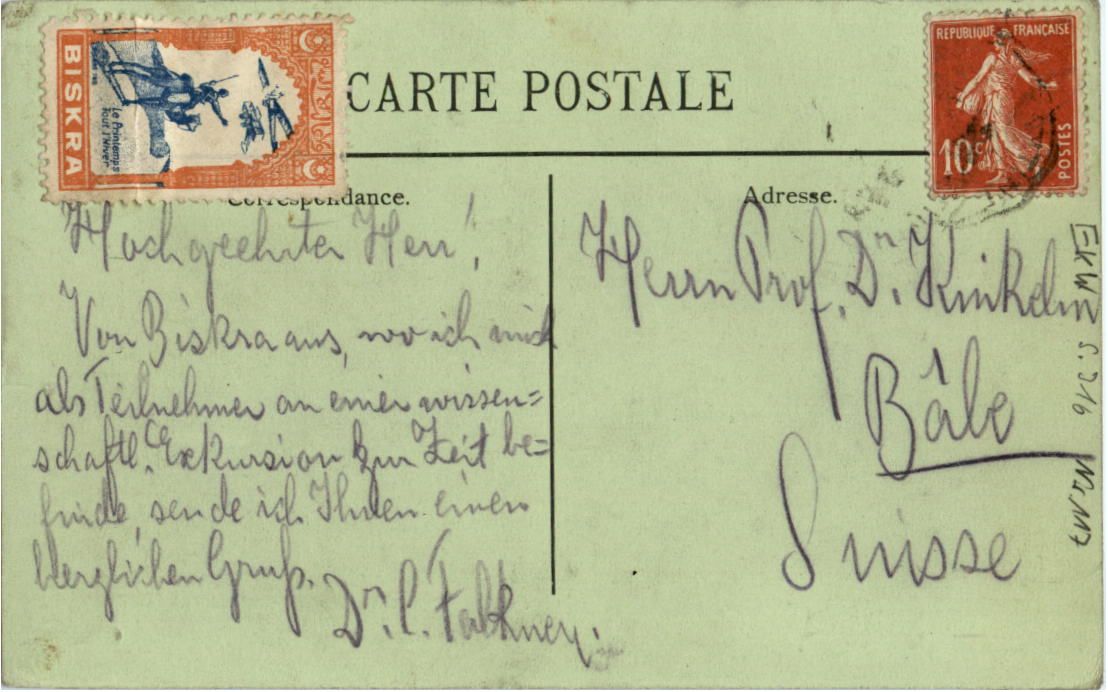 BISKRA
Le Printemps
Tout l'Hiver
CARTE POSTALE
REPUBLIQUE FRANÇAISE
10c
POSTES
Correspondance.
Adresse.
Hochgeehrter Herr!
Von Biskra aus, wo ich mich
als Teilnehmer an einer wissen=
schaftl. Exkursion zur Zeit be=
finde, sende ich Ihnen einen
herzlichen Gruß.
Dr. C. Falkner.
Herrn Prof. Dr. Kinkelin
Bâle
Suisse
EKW S. 216 Nr. 117